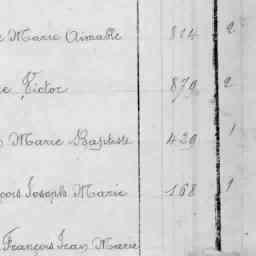 Marie Aimable 814 2
Victor 879 2
Marie Baptiste 439 1
Joseph Marie 168 1
François Jean Marie